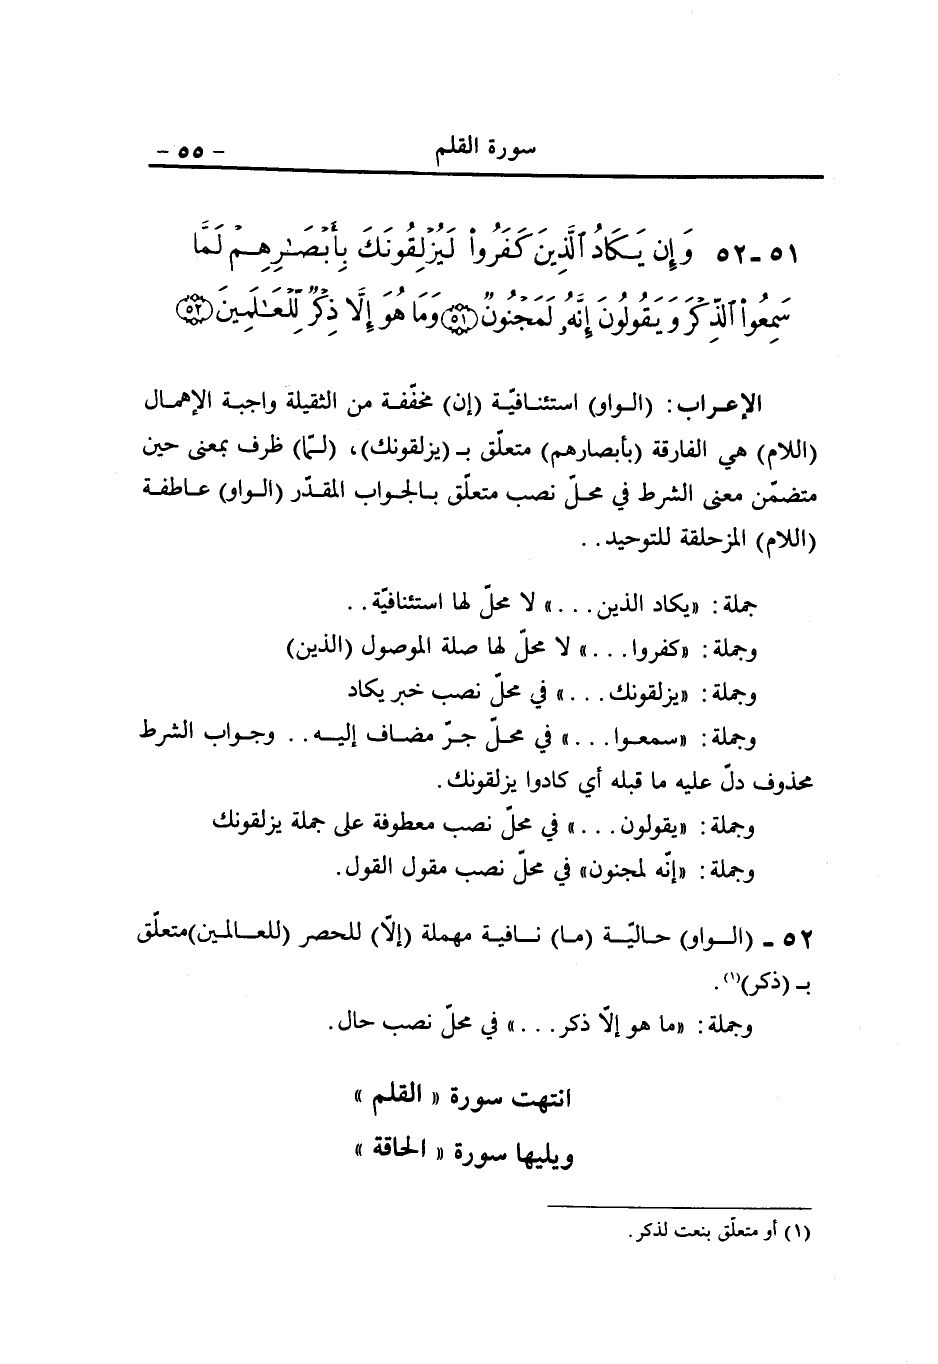 سورة القلم
- ٥٥ -
٥١ - ٥٢ وَإِن يَكَادُ ٱلَّذِينَ كَفَرُوا۟ لَيُزْلِقُونَكَ بِأَبْصَـٰرِهِمْ لَمَّا
سَمِعُوا۟ ٱلذِّكْرَ وَيَقُولُونَ إِنَّهُۥ لَمَجْنُونٌ ﴿٥١﴾ وَمَا هُوَ إِلَّا ذِكْرٌ لِّلْعَـٰلَمِينَ ﴿٥٢﴾
الإعراب: (الواو) استئنافيّة (إن) مخفّفة من الثقيلة واجبة الإهمال
(اللام) هي الفارقة (بأبصارهم) متعلّق بـ (يزلقونك)، (لمّا) ظرف بمعنى حين
متضمّن معنى الشرط في محلّ نصب متعلّق بالجواب المقدّر (الواو) عاطفة
(اللام) المزحلقة للتوحيد . .
جملة: «يكاد الذين . . .» لا محلّ لها استئنافيّة . .
وجملة: «كفروا . . .» لا محلّ لها صلة الموصول (الذين)
وجملة: «يزلقونك . . .» في محلّ نصب خبر يكاد
وجملة: «سمعوا . . .» في محلّ جرّ مضاف إليه . . وجواب الشرط
محذوف دلّ عليه ما قبله أي كادوا يزلقونك.
وجملة: «يقولون . . .» في محلّ نصب معطوفة على جملة يزلقونك
وجملة: «إنّه لمجنون» في محلّ نصب مقول القول.
٥٢ - (الواو) حاليّة (ما) نافية مهملة (إلّا) للحصر (للعالمين) متعلّق
بـ (ذكر)(١).
وجملة: «ما هو إلّا ذكر . . .» في محلّ نصب حال.
انتهت سورة « القلم »
ويليها سورة « الحاقة »
(١) أو متعلّق بنعت لذكر.